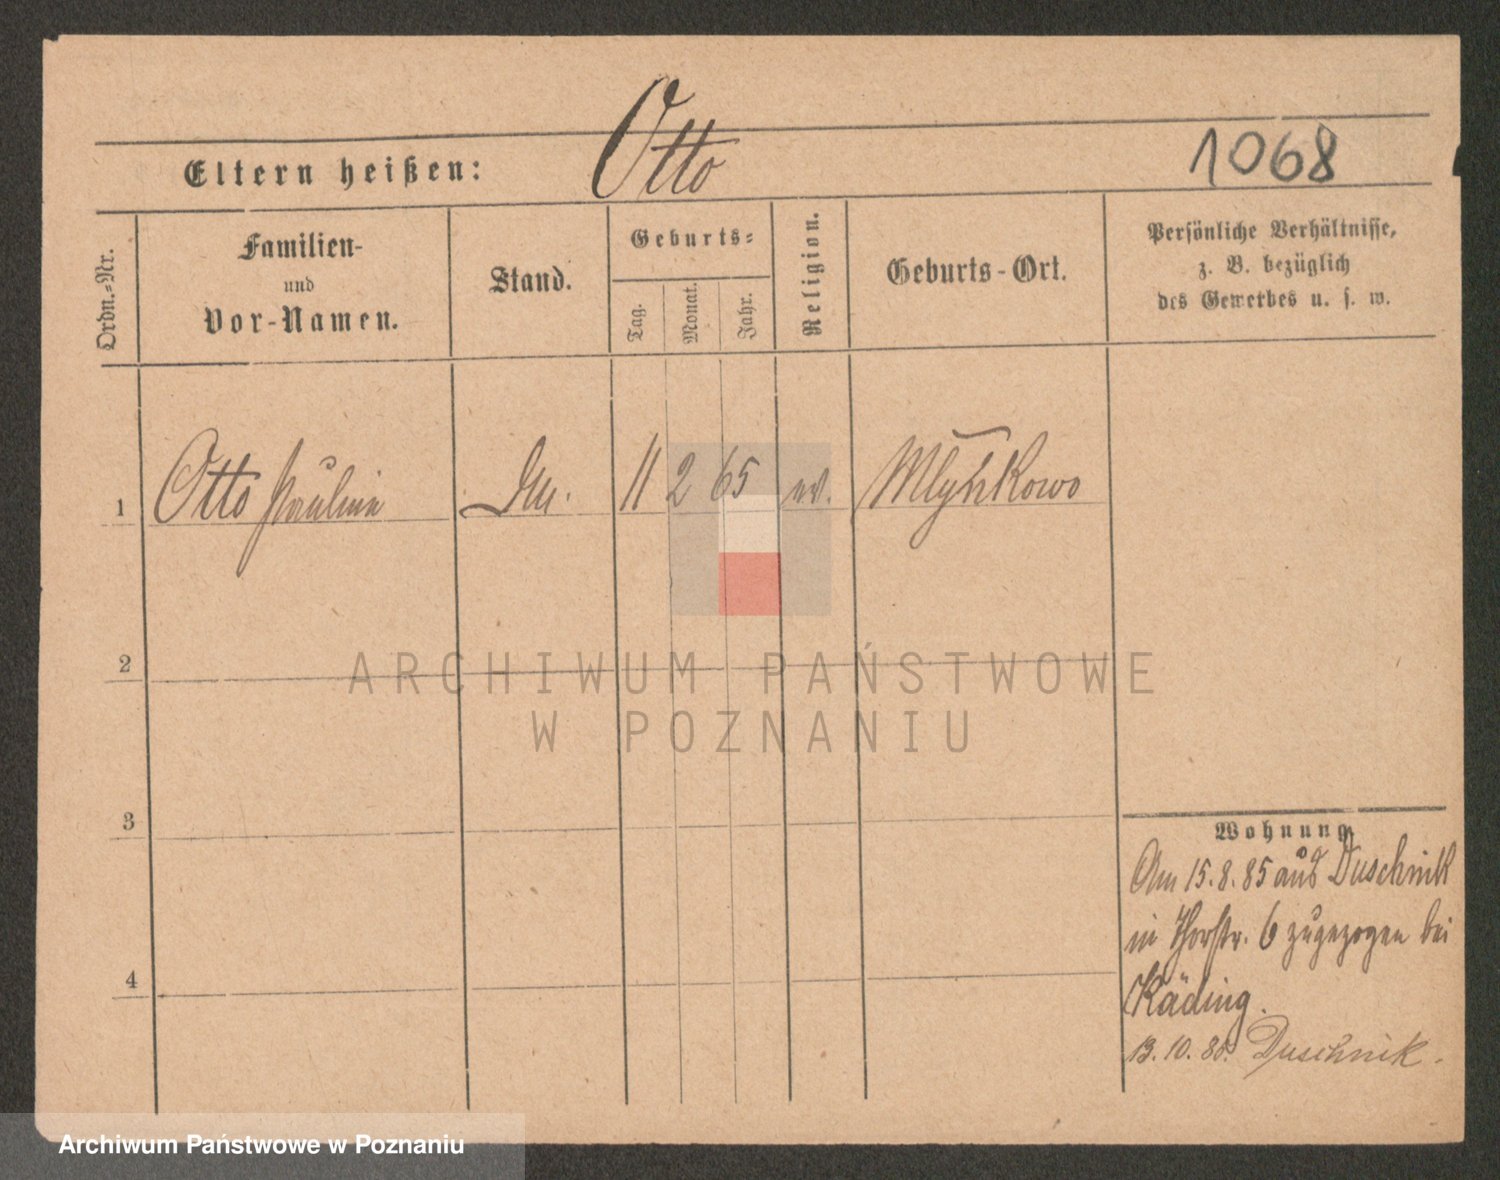 Otto
1068
Eltern heißen:
Ordn.-Nr.
Familien-
und
Vor-Namen.
Stand.
Geburts-
Tag.
Monat.
Jahr.
Religion.
Geburts-Ort.
Persönliche Verhältnisse,
z. B. bezüglich
des Gewerbes u. s. w.
1 Otto Pauline 11 2 65 ev. Mlynkowo
2
3
4
Wohnung
Am 15.8.85 aus Duschnik
in Thorstr. 6 zugezogen bei
Käding.
13.10.85. Duschnik.
ARCHIWUM PAŃSTWOWE
W POZNANIU
Archiwum Państwowe w Poznaniu